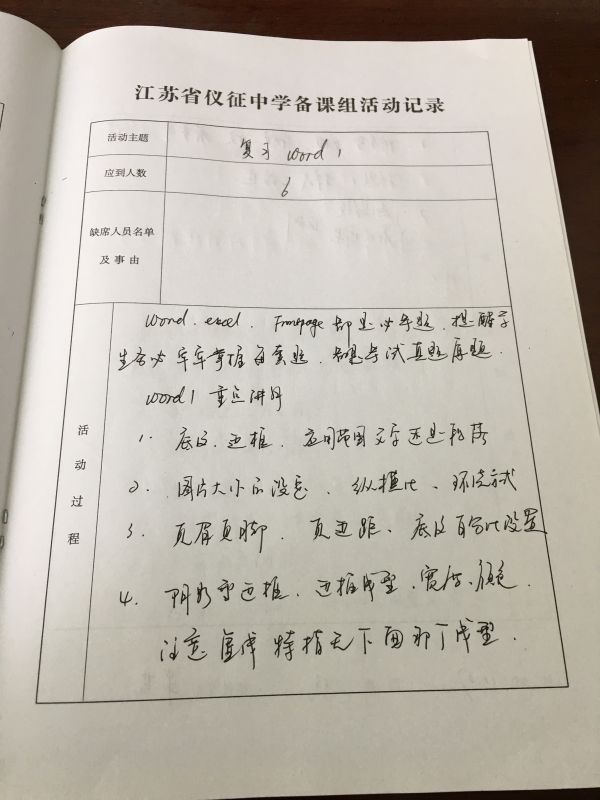 江苏省仪征中学备课组活动记录
活动主题 复习 word 1
应到人数 6
缺席人员名单
及事由
活动过程
word、excel、Frontpage 都是必考题、提醒学
生务必牢牢掌握每套题、都是考试真题原题。
word 1 重点讲解
1. 底纹、边框、应用范围文字还是段落
2. 图片大小的设置、纵横比、环绕方式
3. 页眉页脚、页边距、底纹百分比设置
4. 阴影型边框、边框线型、宽度、颜色、
注意虚线特指无下面那丁线型.